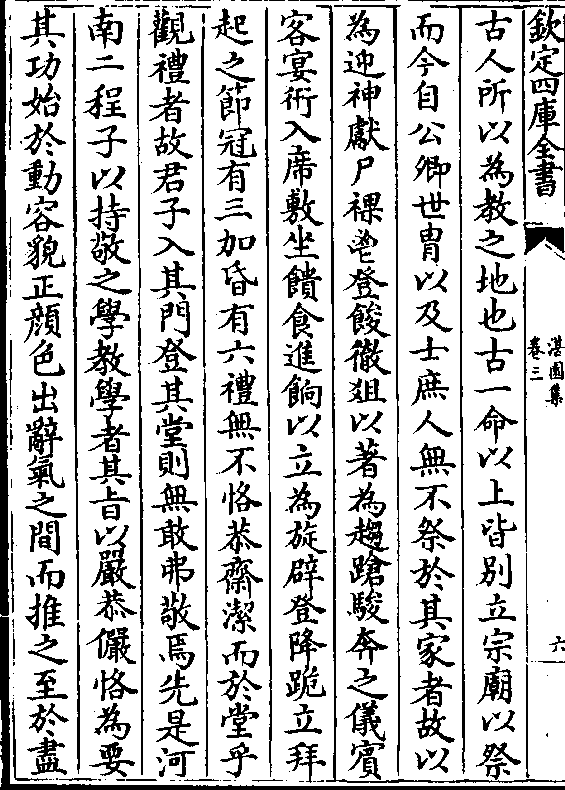 欽定四庫全書
湛園集
卷三
六
古人所以為教之地也古一命以上皆別立宗廟以祭
而今自公卿世胄以及士庶人無不祭於其家者故以
為迎神獻尸祼鬯登餕徹俎以著為趨蹌駿奔之儀賓
客宴術入席敷坐饋食進餉以立為旋辟登降跪立拜
起之節冠有三加昏有六禮無不恪恭齋潔而於堂乎
觀禮者故君子入其門登其堂則無敢弗敬焉先是河
南二程子以持敬之學教學者其旨以嚴恭儼恪為要
其功始於動容貌正顔色出辭氣之間而推之至於盡